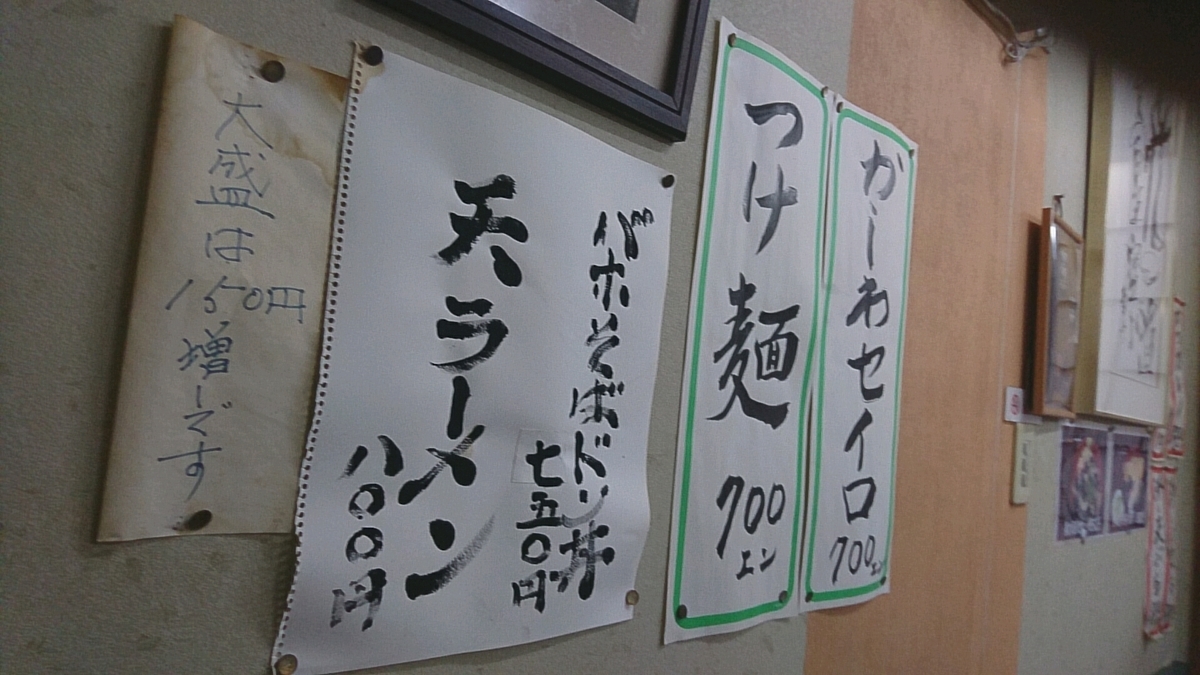 かしわセイロ
700エン
つけ麺
700エン
バホそばドン丼
七五〇円
天ラーメン
八〇〇円
大盛は
150円
増しです